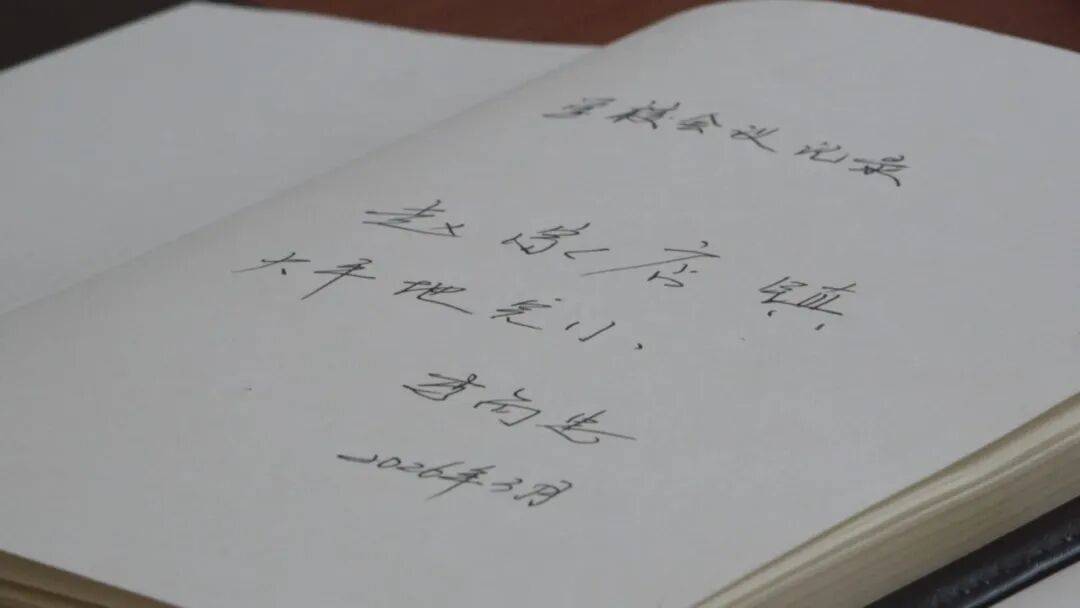 学校会议记录
赵家店镇
大平地完小
李尚忠
2026年3月